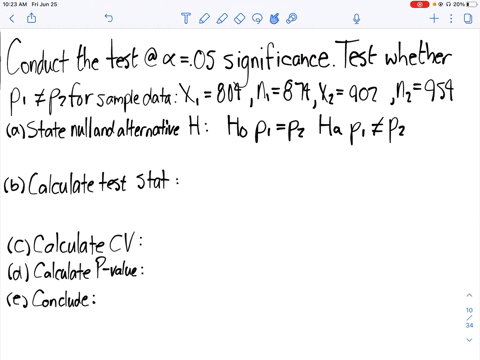 10:23 AM Fri Jun 25
20%
Conduct the test @ α=.05 significance. Test whether
p₁ ≠ p₂ for sample data: X₁ = 804, n₁ = 874, X₂ = 902, n₂ = 954
(a) State null and alternative H: H₀ p₁ = p₂ Ha p₁ ≠ p₂
(b) Calculate test stat:
(c) Calculate CV:
(d) Calculate P-value:
(e) Conclude:
10
/
34